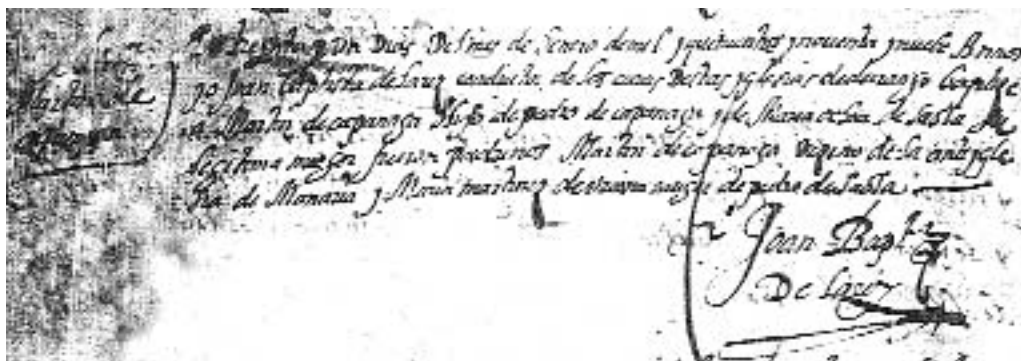 Martin de
treynta y un Dias Del mes de henero de mil y quinientos y noventa y nueve Annos
yo Joan baptista de Lariz de los curas Destas yglesias de durango baptice
a Martin de capanaga Hijo de pedro de capanaga y de Maria de Sasta su
legitima muger fueron padrinos Martin de capanaga vezino de la ante ygle
sia de Manaria y Maria martinez de muger de pedro de Sasta
Joan Bapta
De Lariz